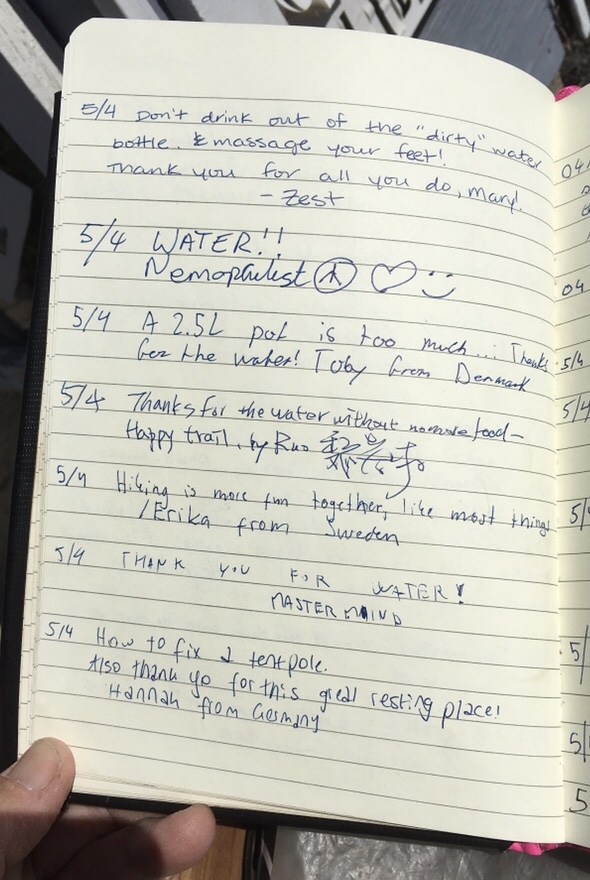 5/4 Don't drink out of the "dirty" water
bottle. & massage your feet!
Thank you for all you do, Mary!
- Zest
5/4 WATER!!
Nemophilist
5/4 A 2.5L pot is too much... Thanks
for the water! Toby from Denmark
5/4 Thanks for the water without no more food-
Happy trail. by
5/4 Hiking is more fun together, like most things
/Erika from Sweden
5/4 THANK YOU FOR WATER!
MASTERMIND
5/4 How to fix a tentpole.
Also thank yo for this great resting place!
Hannah from Germany
04
04
5/4
5/4
5/
5/
5/
5